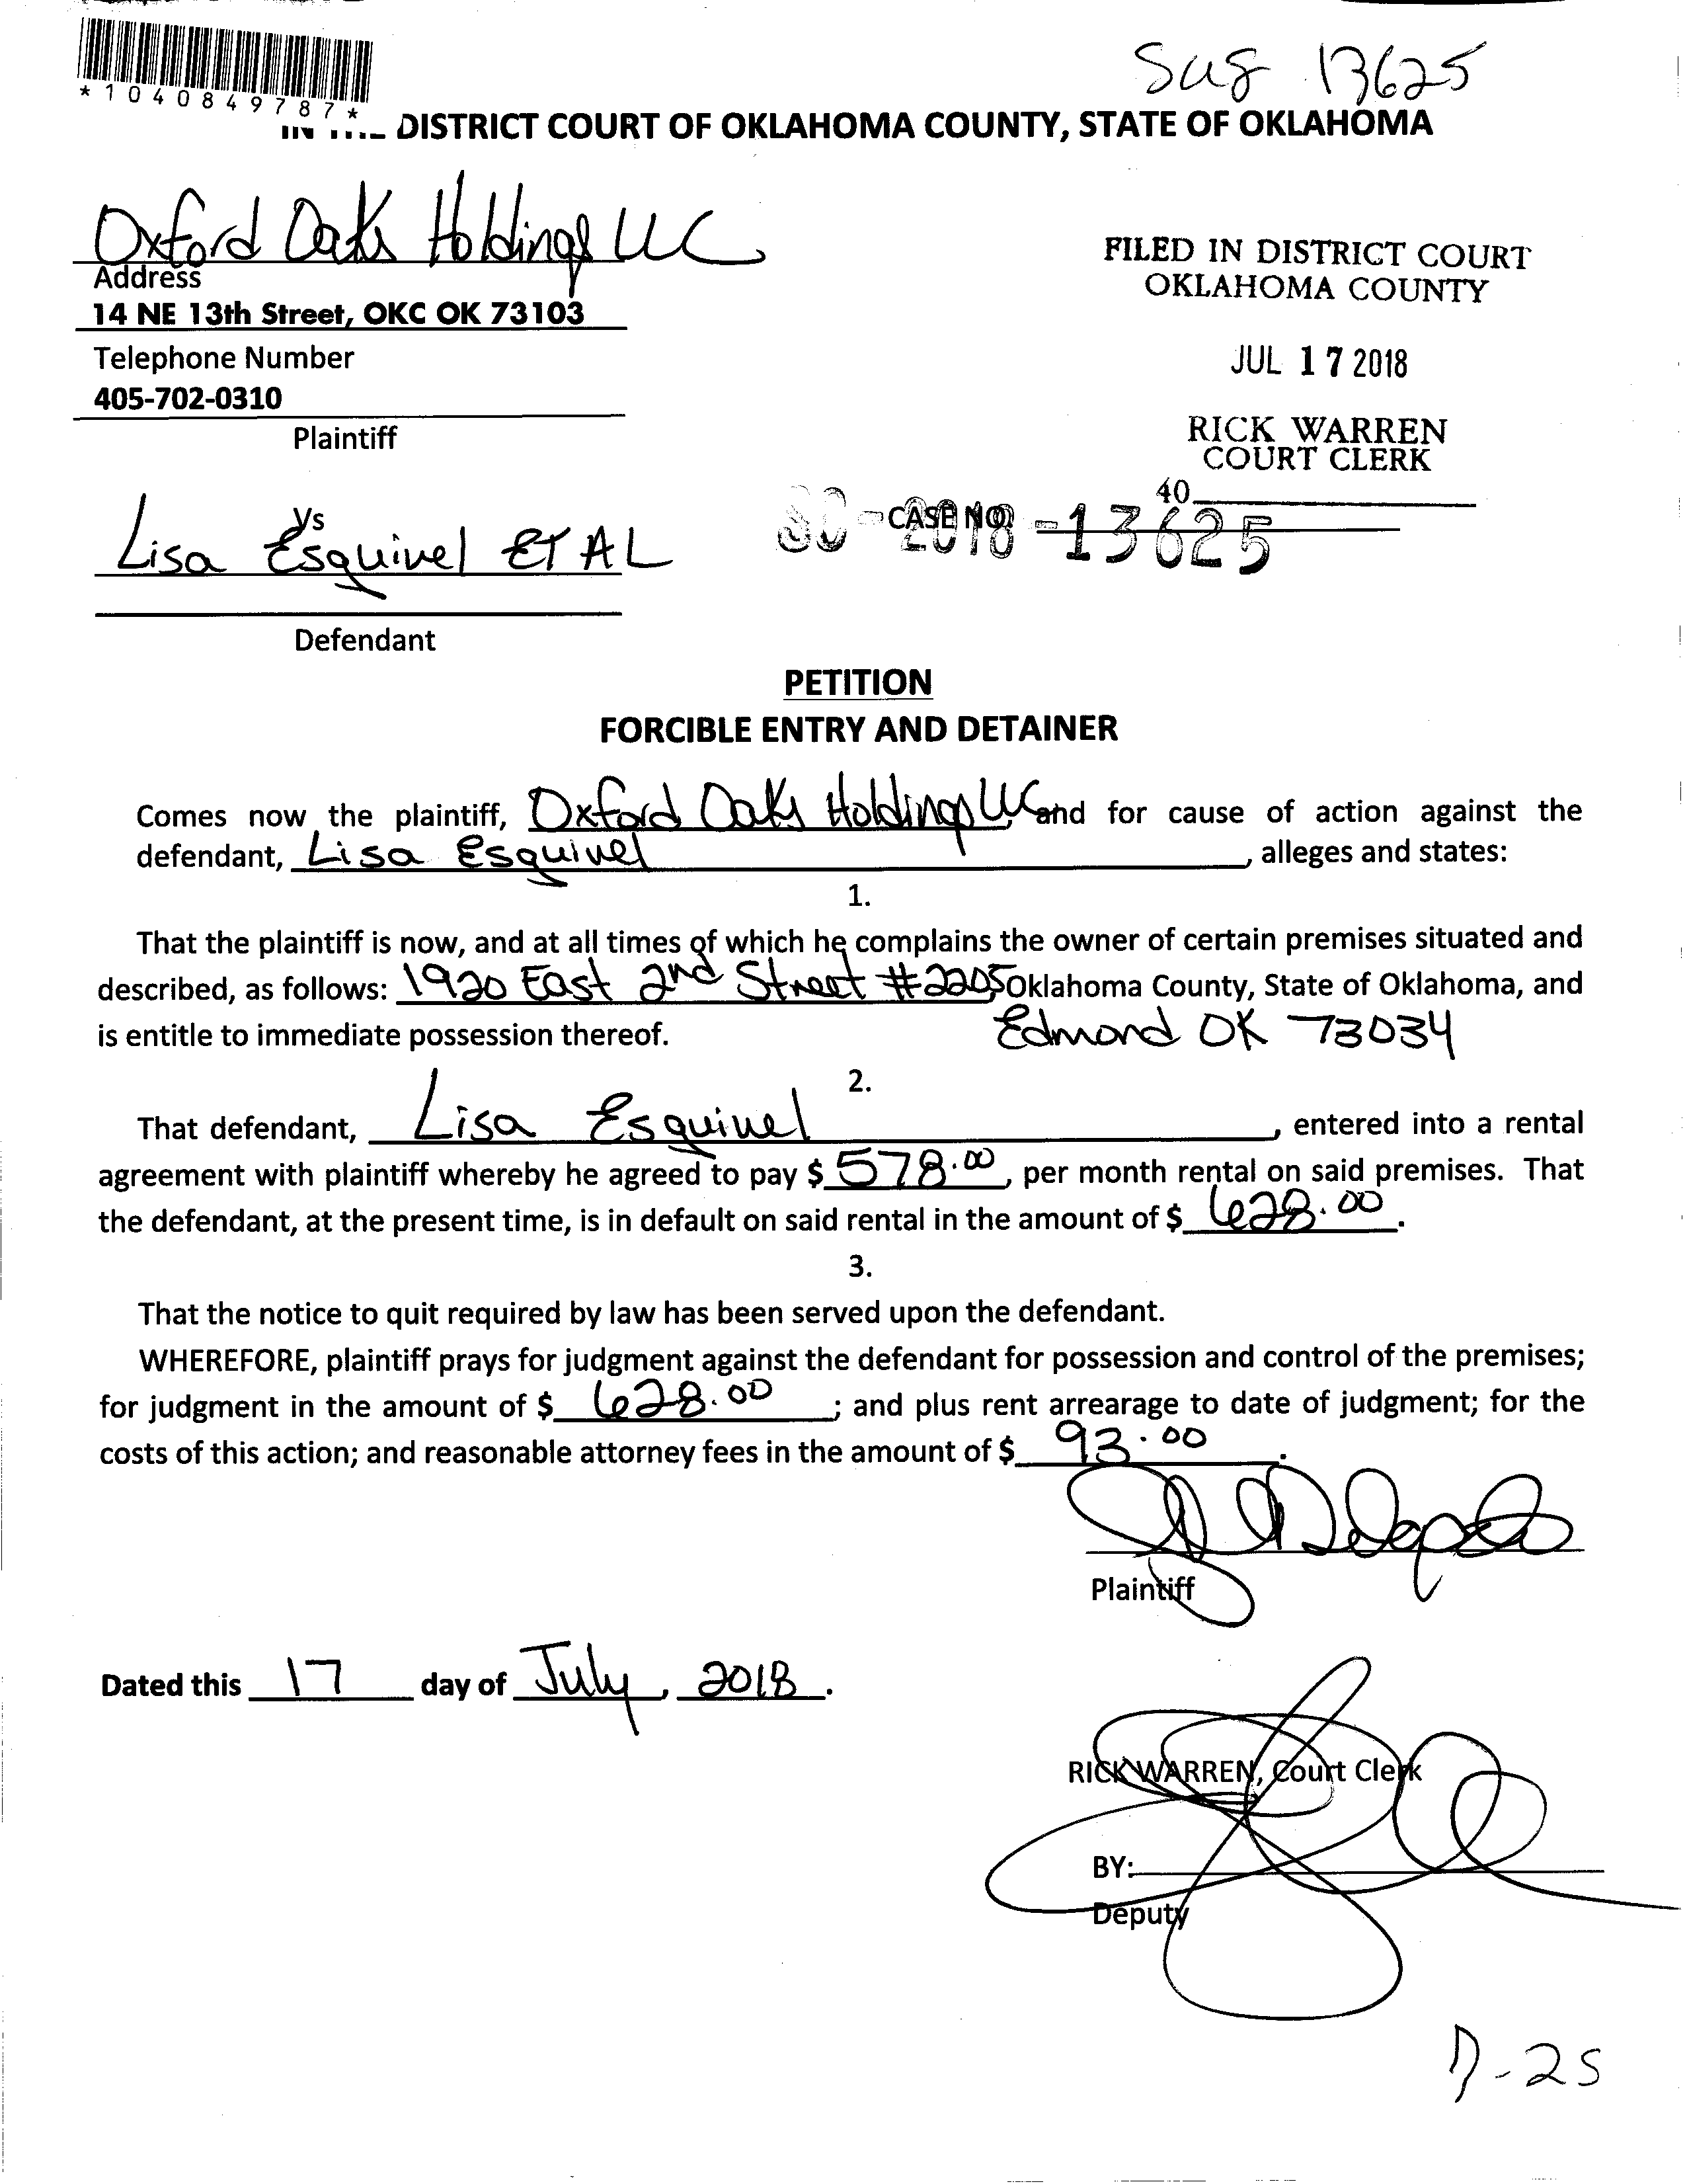 *1040849787*
DISTRICT COURT OF OKLAHOMA COUNTY, STATE OF OKLAHOMA
13625
Oxford Oaks Holdings LLC
Address
14 NE 13th Street, OKC OK 73103
Telephone Number
405-702-0310
Plaintiff
FILED IN DISTRICT COURT
OKLAHOMA COUNTY
JUL 17 2018
RICK WARREN
COURT CLERK
40
Vs
Lisa Esquivel ET AL
CASE NO. -2018-13625
Defendant
PETITION
FORCIBLE ENTRY AND DETAINER
Comes now the plaintiff, Oxford Oaks Holdings LLC and for cause of action against the
defendant, Lisa Esquivel, alleges and states:
1.
That the plaintiff is now, and at all times of which he complains the owner of certain premises situated and
described, as follows: 1920 East 2nd Street #2205, Oklahoma County, State of Oklahoma, and
is entitle to immediate possession thereof. Edmond OK 73034
2.
That defendant, Lisa Esquivel, entered into a rental
agreement with plaintiff whereby he agreed to pay $ 578.00, per month rental on said premises. That
the defendant, at the present time, is in default on said rental in the amount of $ 628.00.
3.
That the notice to quit required by law has been served upon the defendant.
WHEREFORE, plaintiff prays for judgment against the defendant for possession and control of the premises;
for judgment in the amount of $ 628.00; and plus rent arrearage to date of judgment; for the
costs of this action; and reasonable attorney fees in the amount of $ 93.00.
Plaintiff
Dated this 17 day of July, 2018.
RICK WARREN, Court Clerk
BY:
Deputy